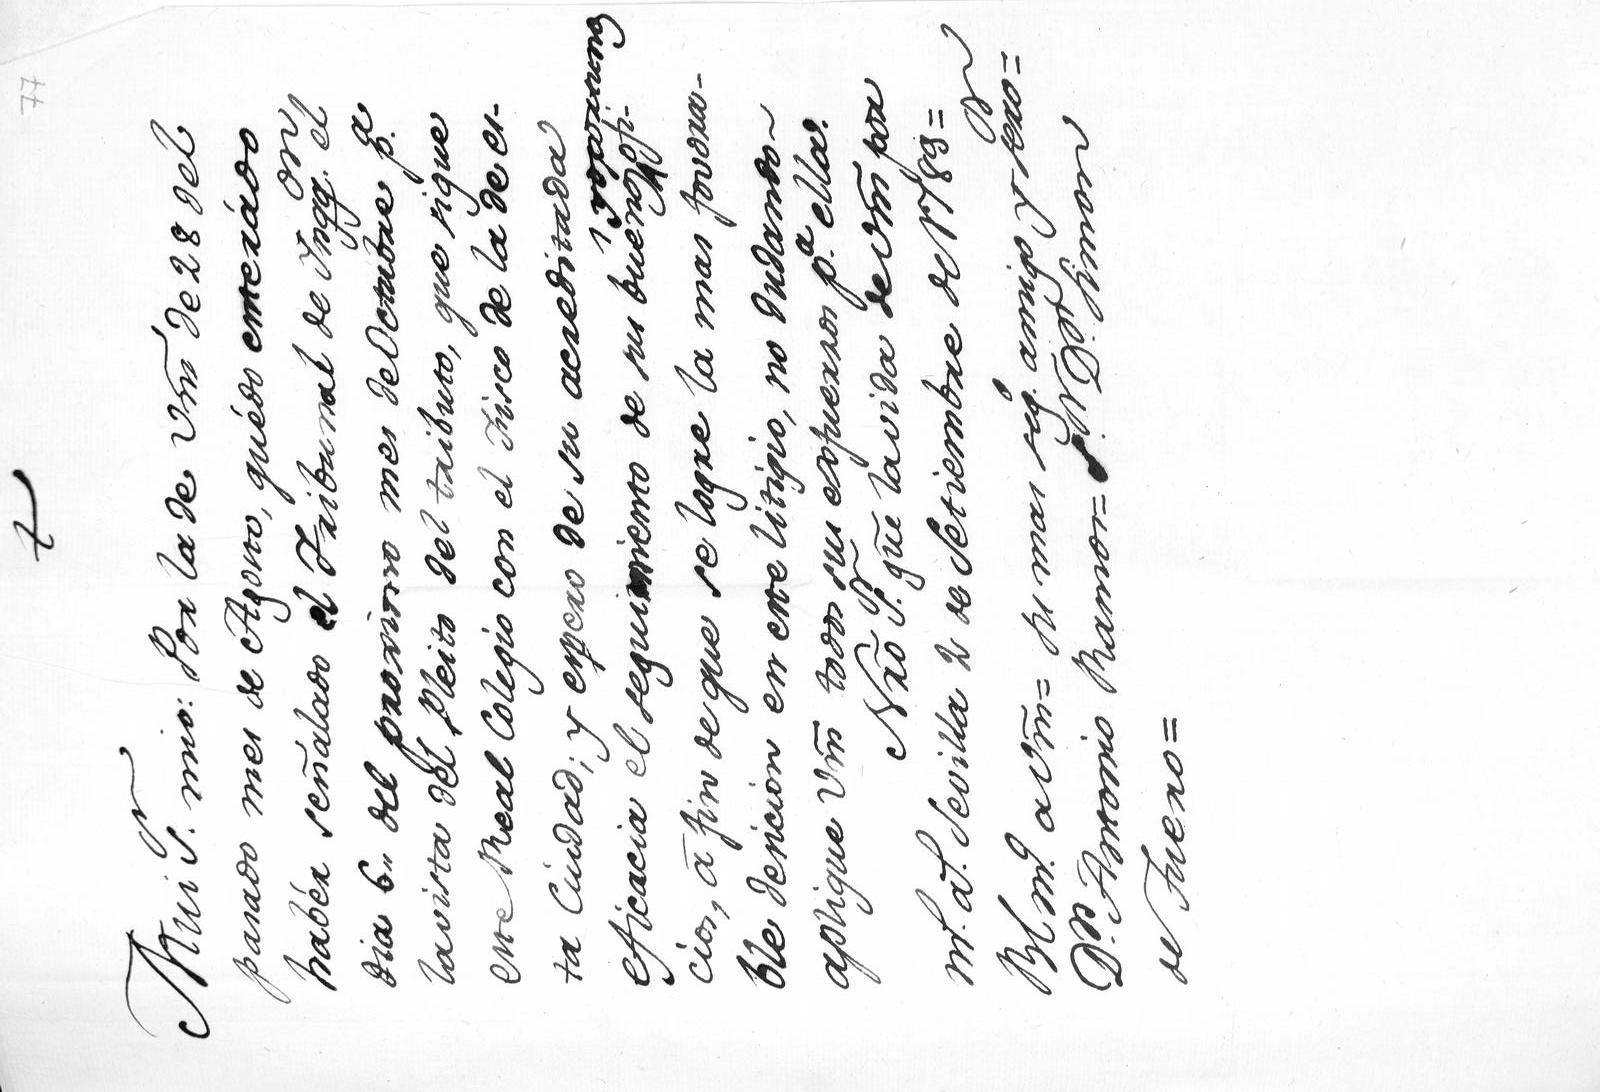 77
+
Mui S.or mio: Por la de Vm̄ de 28 del
pasado mes de Agosto, quédo enterádo
habér señalado el Tribunal de Ingg.on el
dia 6,, del proximo mes de Octubre p.a
la vista del Pleito del tributo, que sigue
este Real Colegio con el Fisco de la de es-
ta Ciudad; y espero de su acreditada
eficacia el seguimiento de sus buenos ofi-
cios, à fin de que se logre la mas favora-
ble decision en este litigio, no dudando
aplique Vm̄ todos sus esfuerzos p.a ella.
Nrō S.or gūe la vida de Vm̄ por
m.s a.s Sevilla 2 de Setiembre de 1789 =
Bl m.o a Vm̄ = su mas seg. amigo, y serv.or =
D.n Antonio Ramos =
de Fuero =